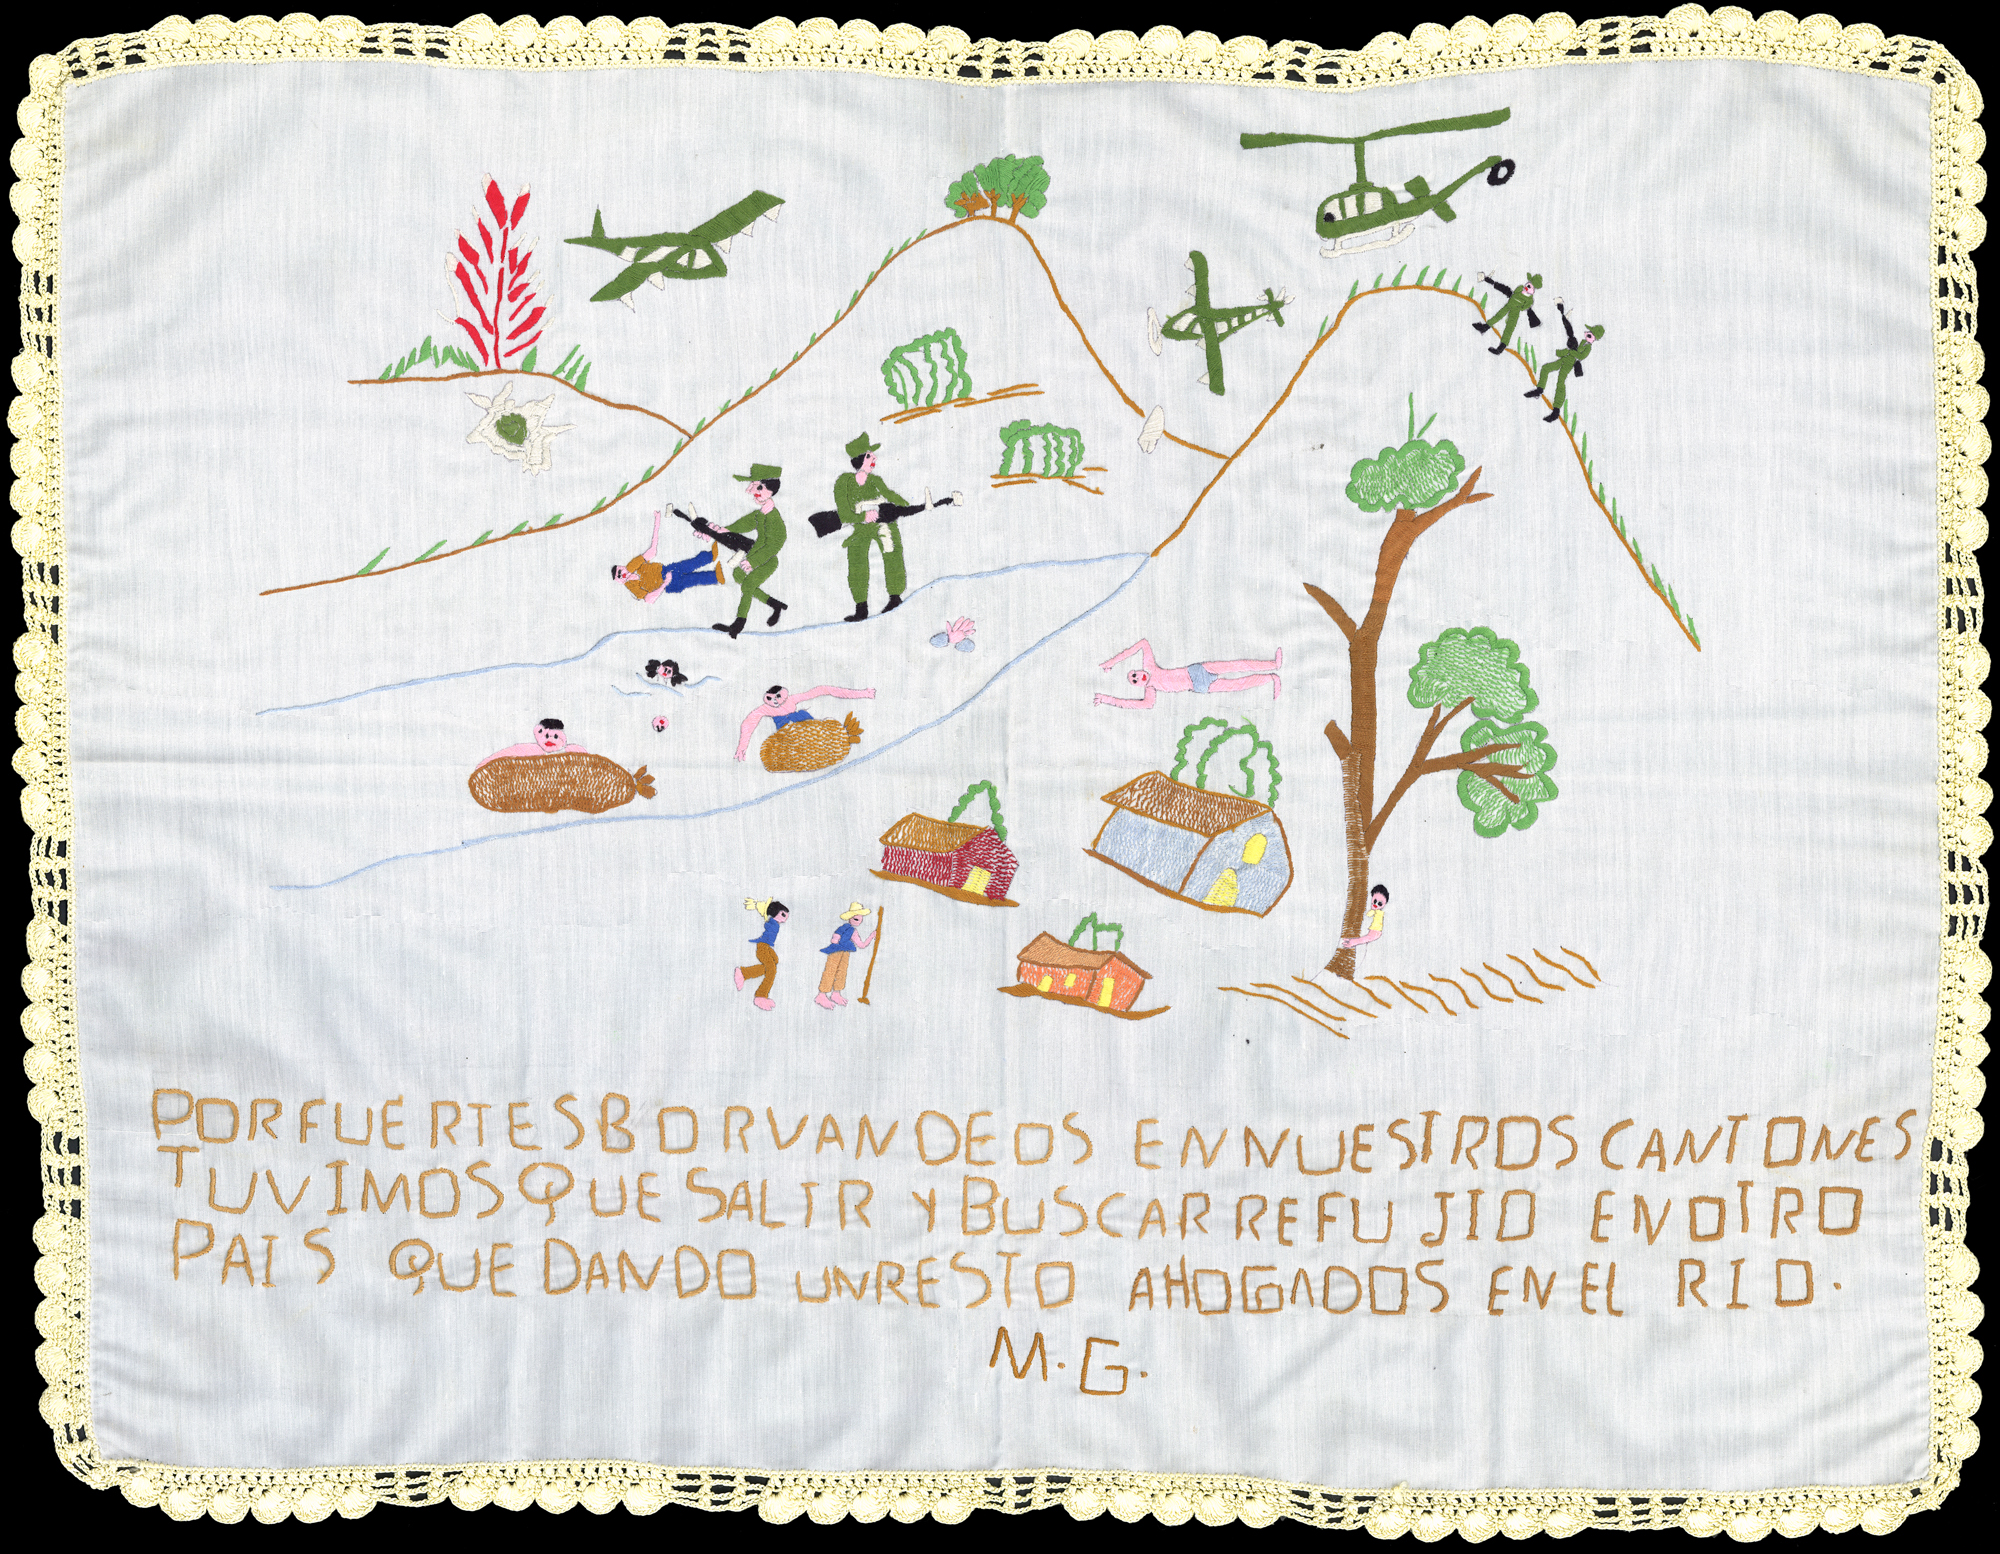 POR FUERTES BORVANDEOS EN NUESTROS CANTONES
TUVIMOS QUE SALIR Y BUSCAR REFUJIO EN OTRO
PAIS QUEDANDO UN RESTO AHOGADOS EN EL RIO.
M.G.